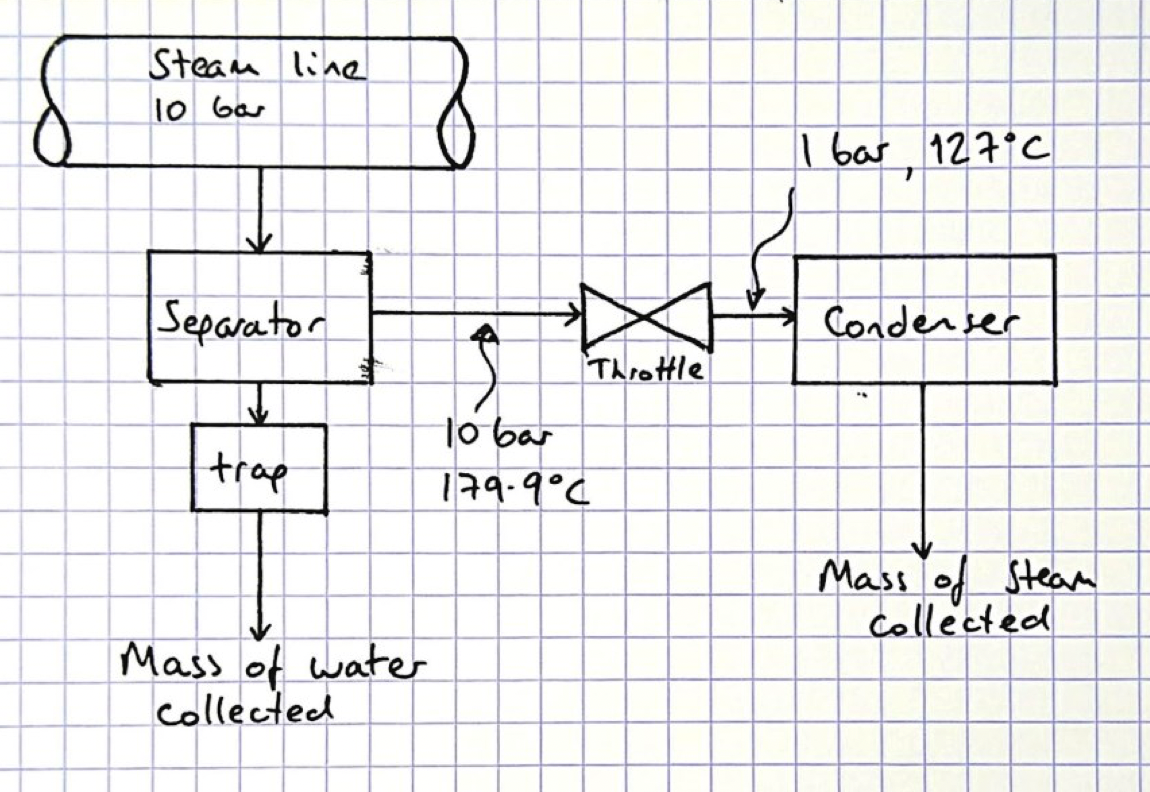 Steam line
10 bar
1 bar, 127°C
Separator
Throttle
Condenser
10 bar
179.9°C
trap
Mass of steam
collected
Mass of water
collected